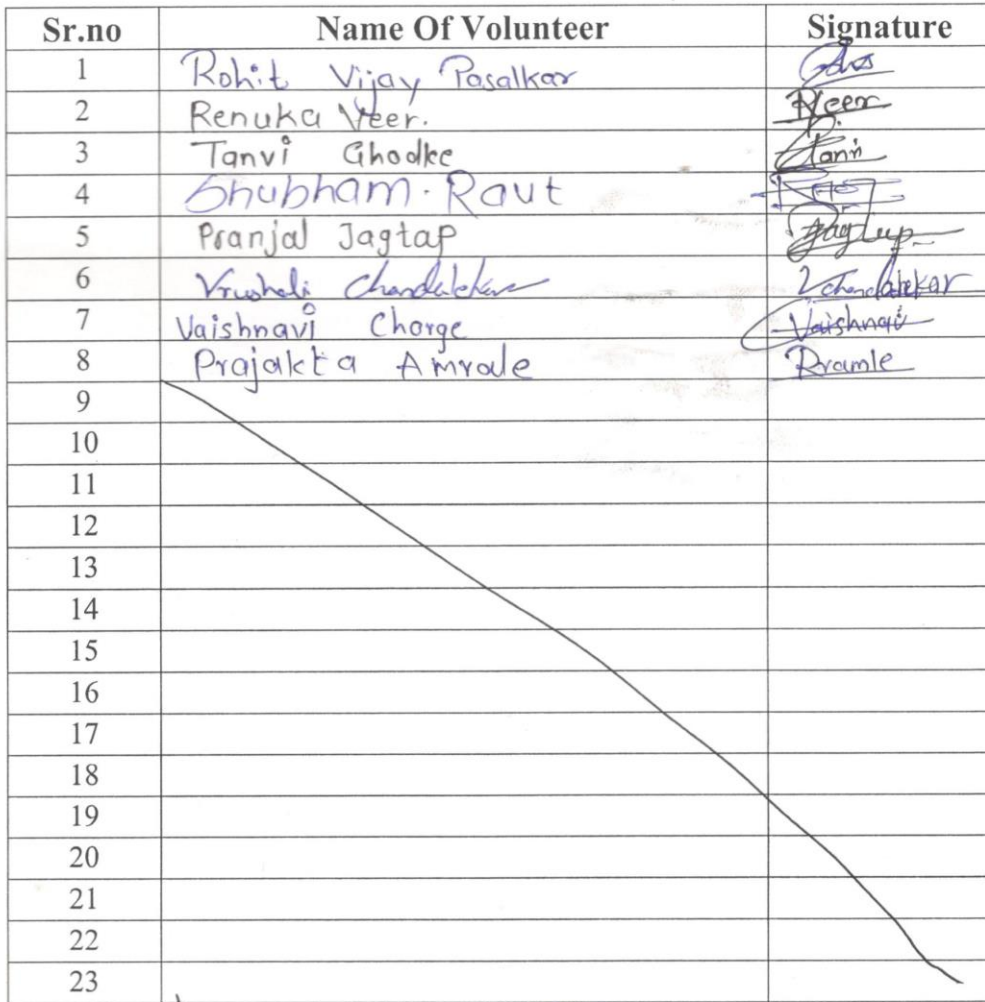 Sr.no Name Of Volunteer Signature
1 Rohit Vijay Pasalkar
2 Renuka Veer. Rveer
3 Tanvi Ghodke
4 Shubham. Raut
5 Pranjal Jagtap Jagtap
6 Vrushali Chandalekar VChandalekar
7 Vaishnavi Chorge Vaishnavi
8 Prajakta Amrale
9
10
11
12
13
14
15
16
17
18
19
20
21
22
23